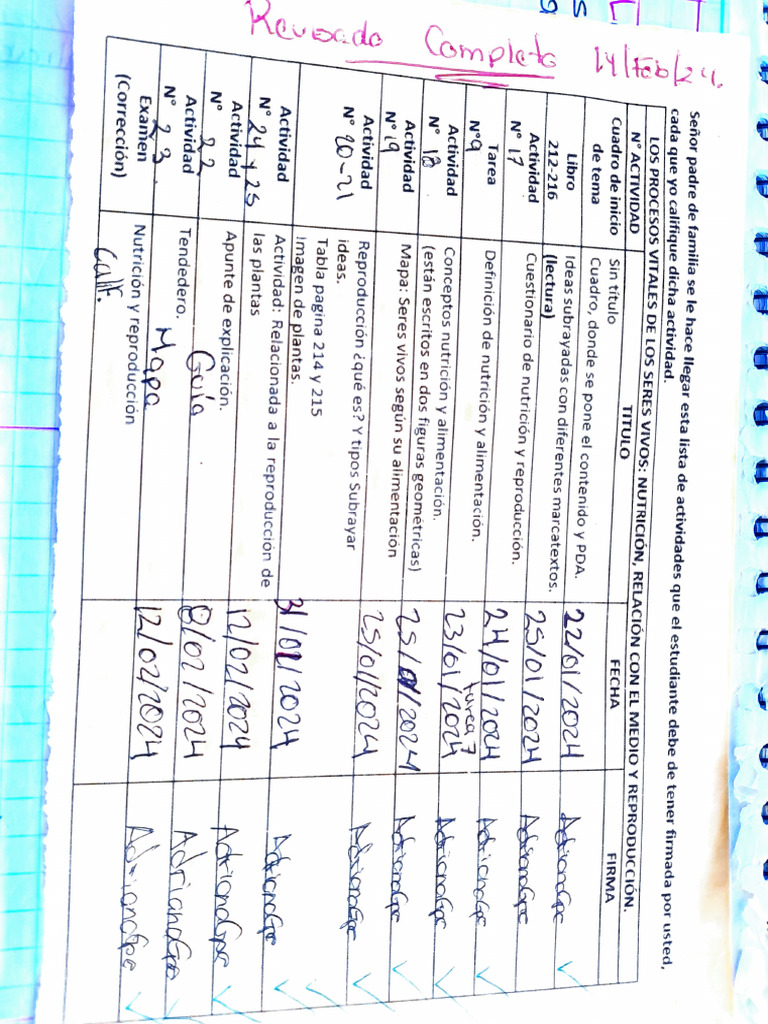 Revisado Completo 14/Feb/24.
Señor padre de familia se le hace llegar esta lista de actividades que el estudiante debe de tener firmada por usted,
cada que yo califique dicha actividad.
LOS PROCESOS VITALES DE LOS SERES VIVOS: NUTRICIÓN, RELACIÓN CON EL MEDIO Y REPRODUCCIÓN.
N° ACTIVIDAD TITULO FECHA FIRMA
Cuadro de inicio Sin título
de tema Cuadro, donde se pone el contenido y PDA.
Libro Ideas subrayadas con diferentes marcatextos. 22/01/2024 AdrianaGpe
212-216 (lectura)
Actividad Cuestionario de nutrición y reproducción. 25/01/2024 AdrianaGpe
N° 17
Tarea Definición de nutrición y alimentación. 24/01/2024 AdrianaGpe
N°9 tarea 7
Actividad Conceptos nutrición y alimentación. 23/01/2024 AdrianaGpe
N° 18 (están escritos en dos figuras geométricas)
Actividad Mapa: Seres vivos según su alimentación 25/01/2024 AdrianaGpe
N° 19
Actividad Reproducción ¿qué es? Y tipos Subrayar 25/01/2024 AdrianaGpe
N° 20-21 ideas.
Tabla pagina 214 y 215
Imagen de plantas.
Actividad Actividad: Relacionada a la reproducción de 31/01/2024 AdrianaGpe
N° 24 y 25 las plantas
Actividad Apunte de explicación. 12/02/2024 AdrianaGpe
N° 22 Guía
Actividad Tendedero. 8/02/2024 AdrianaGpe
N° 23 Mapa
Examen Nutrición y reproducción 12/02/2024 AdrianaGpe
(Corrección) Calif.